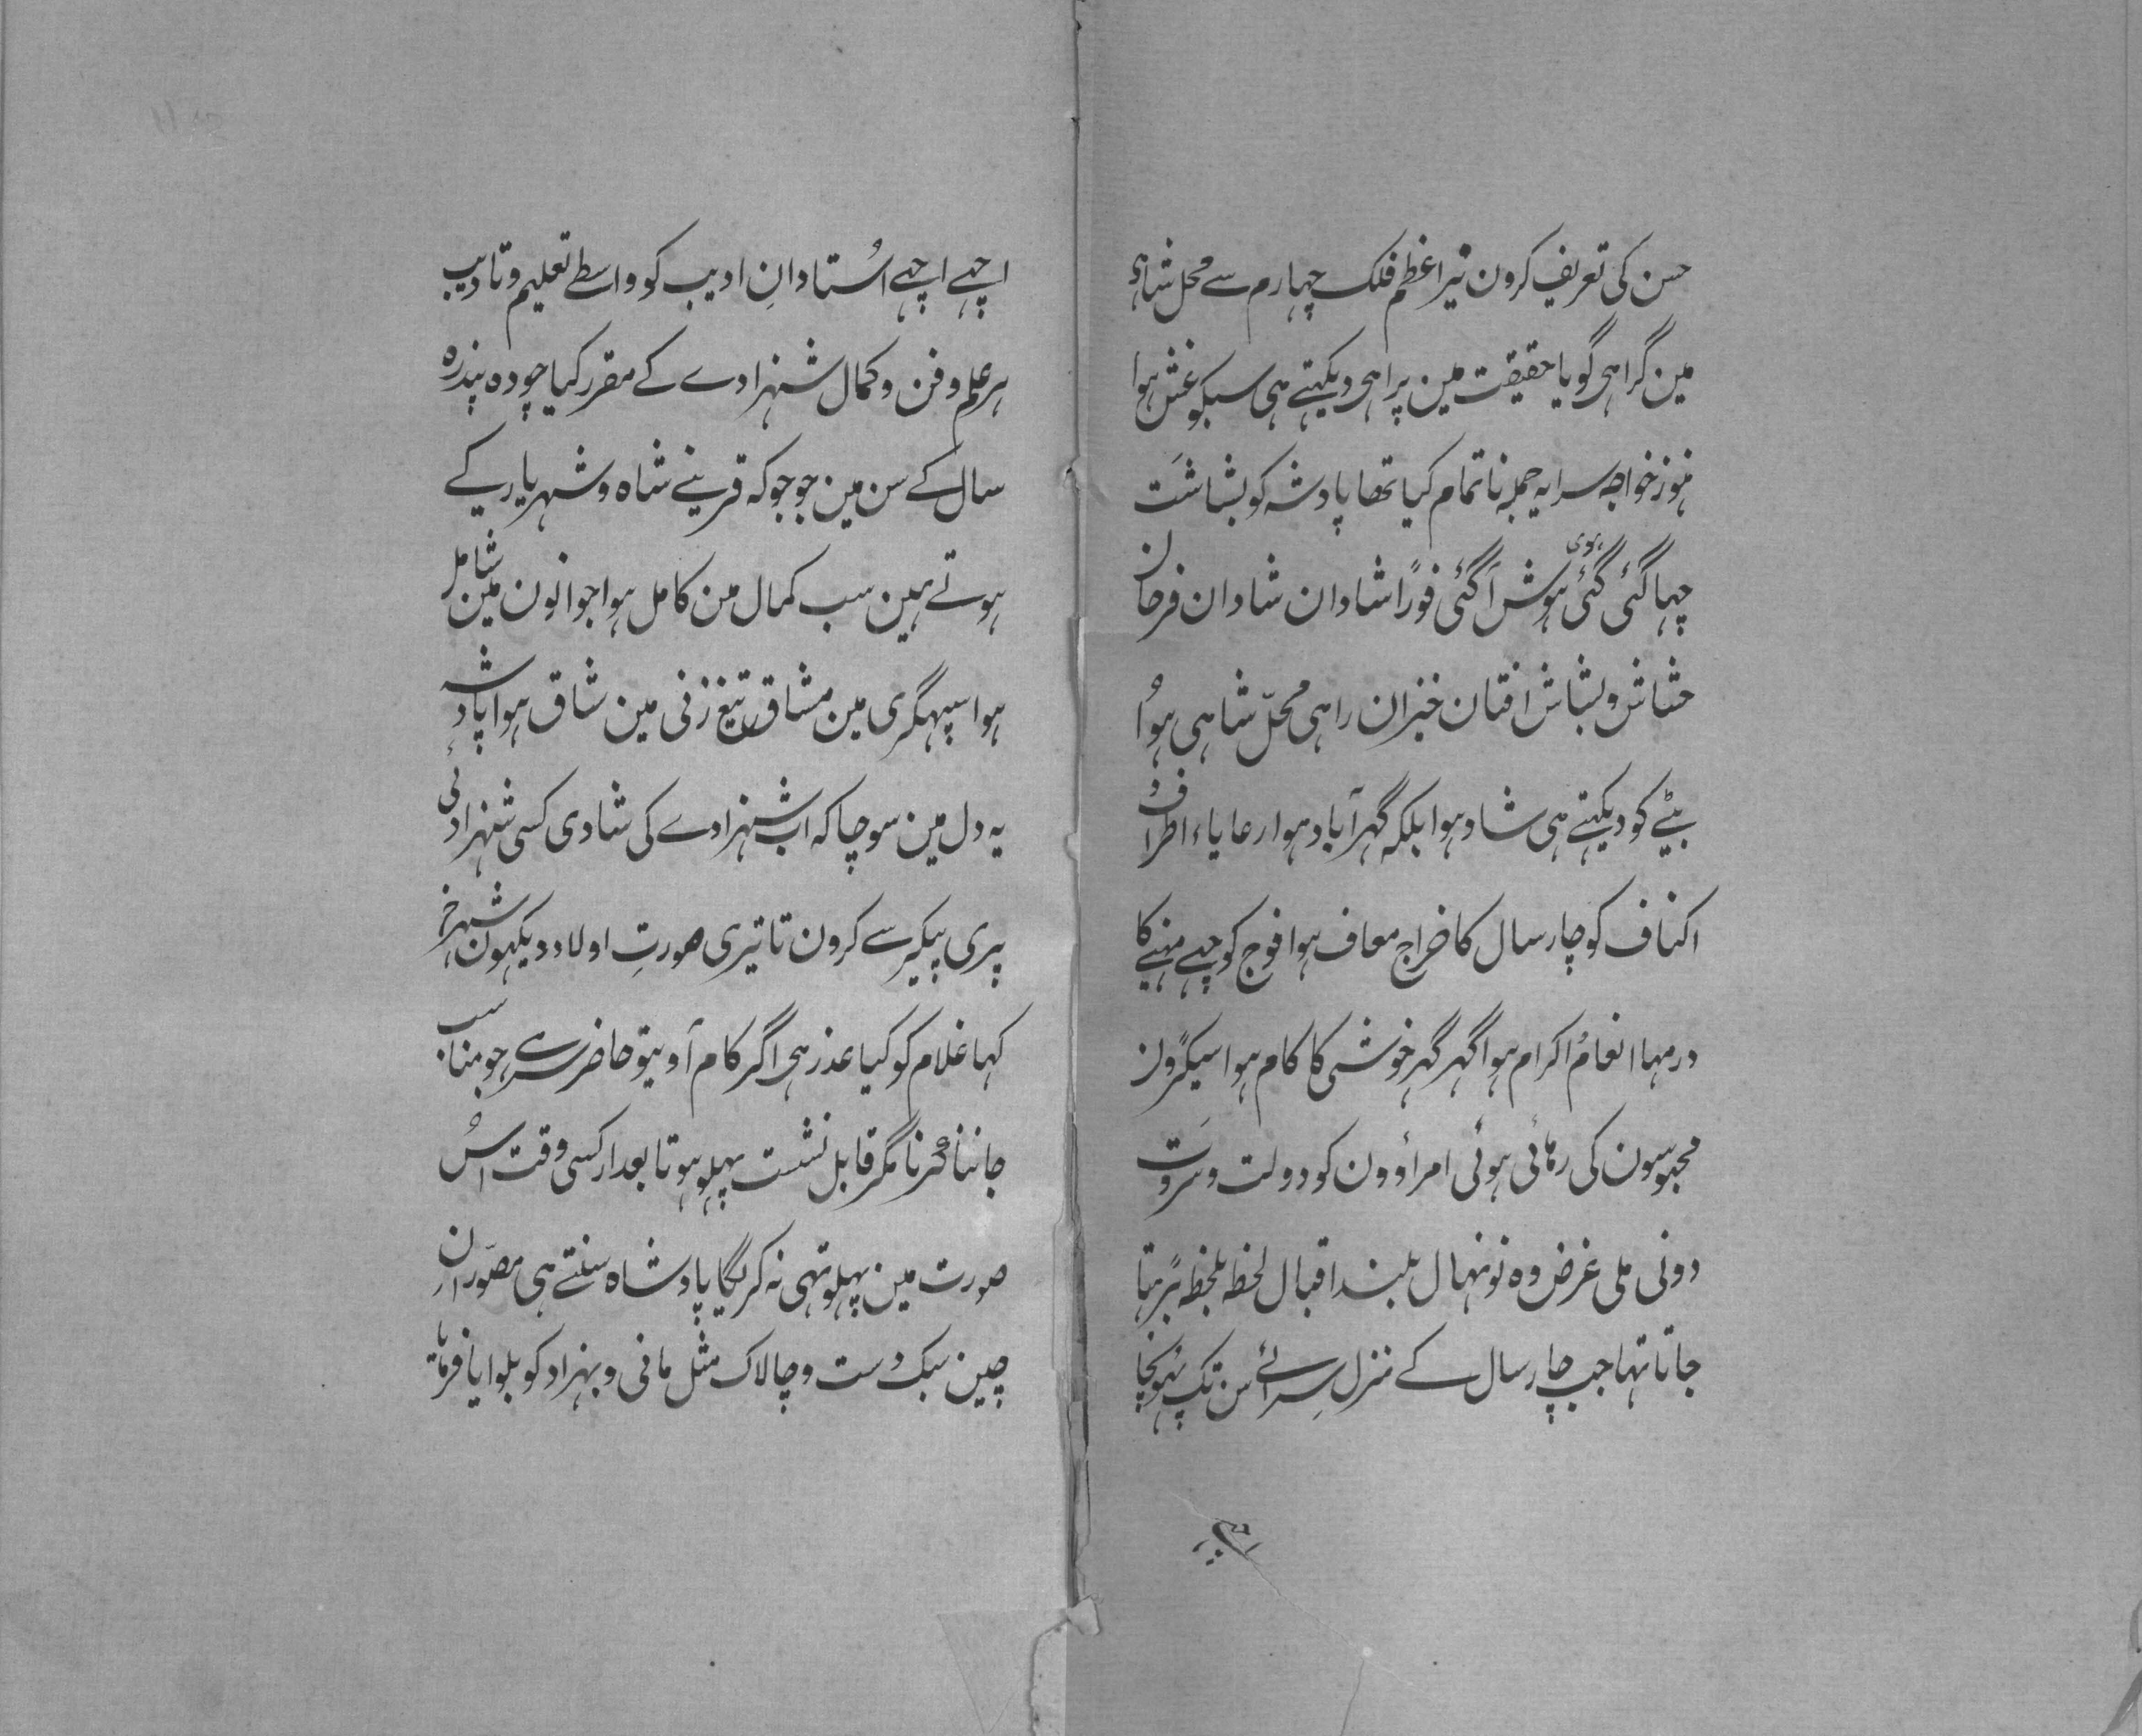 حسن کی تعریف کرون نیر اعظم فلک چہارم سے محل شاہی
مین گرا ہی گویا حقیقت مین پرا ہی دیکہتے ہی سبکو غش ہوا
ہنوز خواجہ سرا یہ جملہ نا تمام کیا تھا پادشہ کو بشاشت
چہا گئی گئی ہوئی ہوش آ گئی فورًا شادان شادان فرحان
حشاش و بشاش افتان خیزان راہی محلّ شاہی ہوُا
بیٹے کو دیکہتے ہی شاد ہوا بلکہ گہر آباد ہوا رعایاء اطراف
اکناف کو چار سال کا خراج معاف ہوا فوج کو چہے مہنیکا
درمہا انعام اکرام ہوا گہر گہر خوشی کا کام ہوا سیکڑون
محبوسون کی رہائی ہوئی امراؤون کو دولت و ثروت
دونی ملی غرض وہ نونہال بلند اقبال لحظہ بلحظہ بڑہتا
جاتا تہا جب چار سال کے منزل سرائے سن تک پہونچا
اچہے اچہے اُستادانِ ادیب کو واسطے تعلیم و تادیب
ہر علم و فن و کمال شہزادے کے مقرر کیا چودہ پندرہ
سال کے سن مین جو جو کہ قرینے شاہ و شہریار کے
ہوتے ہمین سب کمال من کامل ہوا جوانون مین شامل
ہوا سپہگری مین مشاق تیغ زنی مین شاق ہوا پادشہ
یہ دل مین سوچا کہ اب شہزادے کی شادی کسی شہزادئی
پری پیکر سے کرون تا تیری صورتِ اولاد دیکہون شہرخ
کہا غلام کو کیا عذر ہی اگر کام آویتو حاضر سر ہے جو مناسب
جاننا کرنا مگر قابل نشست پہلو ہو تابعدار کسی وقت اُس
صورت مین پہلو تہی نہ کریگا پادشاہ سنتے ہی مصّوران
چین سبک دست و چالاک مثل مانی و بہزاد کو بلوایا فرمایا